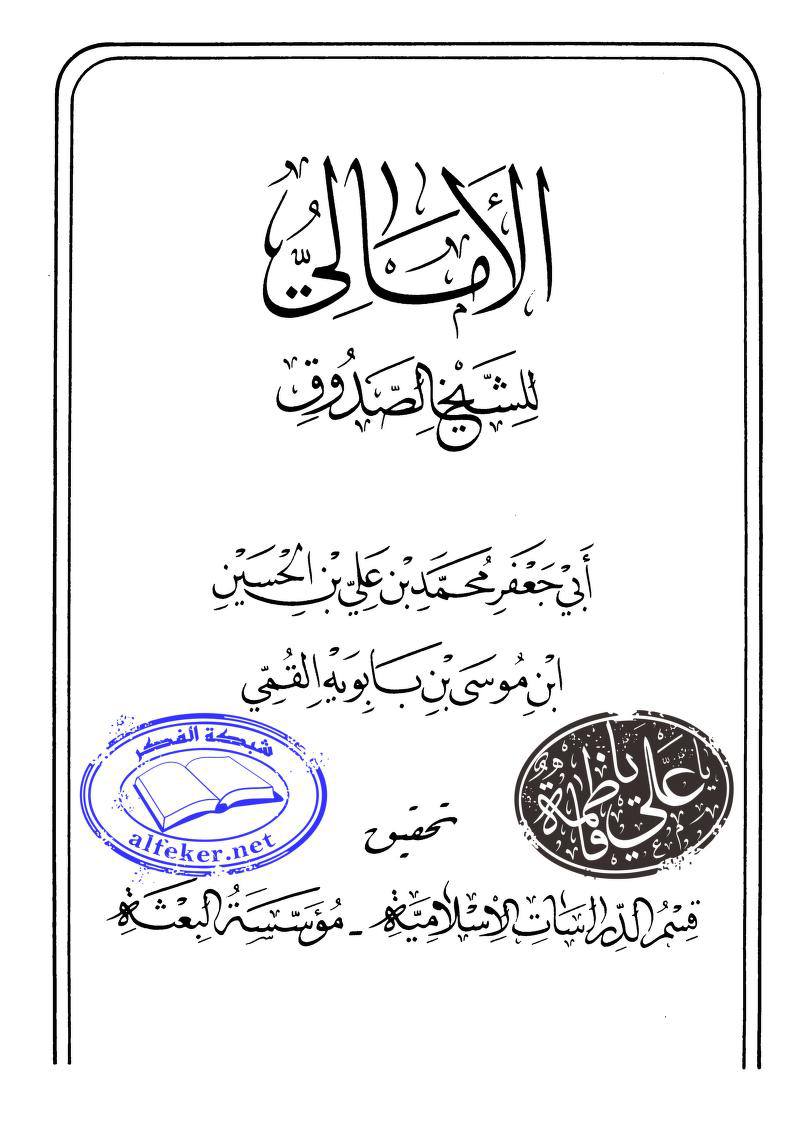 الأَمَالِيّ
لِلشَّيْخِ الصَّدُوقِ
أَبِي جَعْفَرٍ مُحَمَّدِ بْنِ عَلِيِّ بْنِ الْحُسَيْنِ
ابْنِ مُوسَى بْنِ بَابَوَيْهِ الْقُمِّي
شبكة الفكر
alfeker.net
يا علي يا فاطمة
تحقيق
قِسْمُ الدِّرَاسَاتِ الْإِسْلَامِيَّةِ - مُؤَسَّسَةُ الْبِعْثَةِ